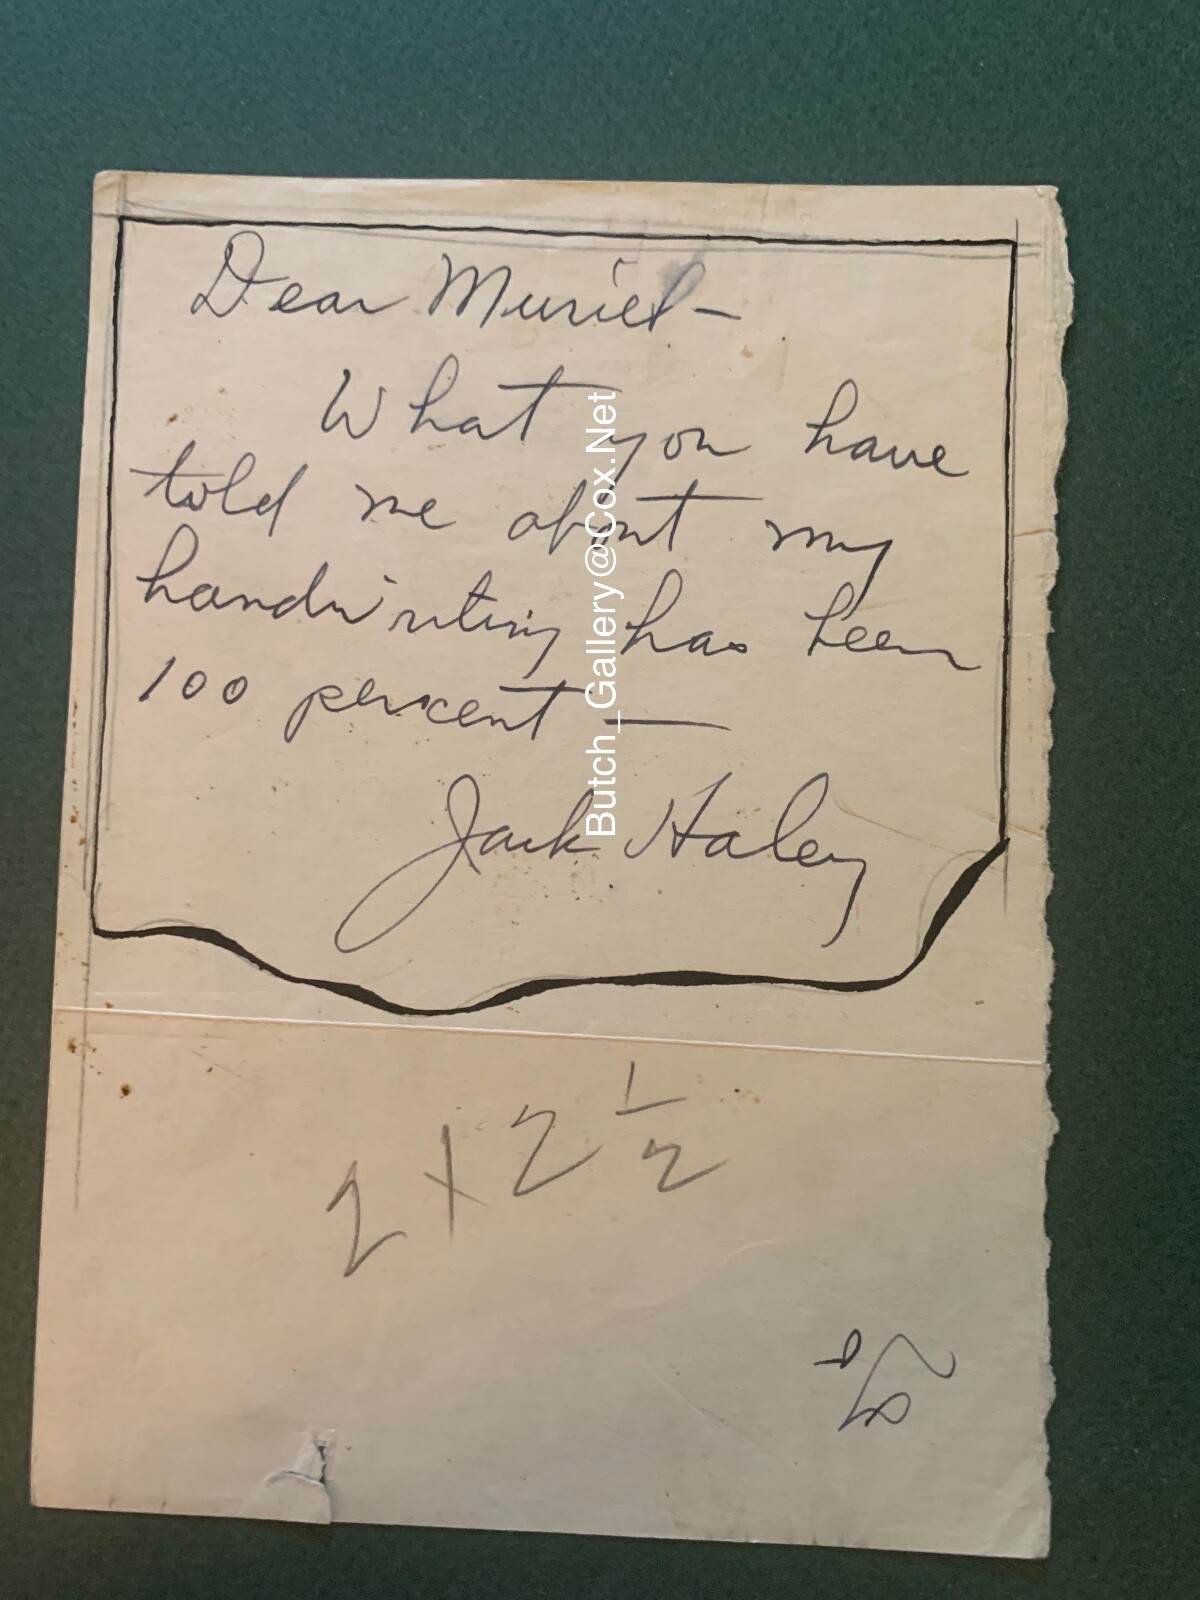 Dear Muriel —
What you have
told me about my
handwriting has been
100 percent —
Jack Haley
2 x 2 1/2
Butch_Gallery@Cox.Net